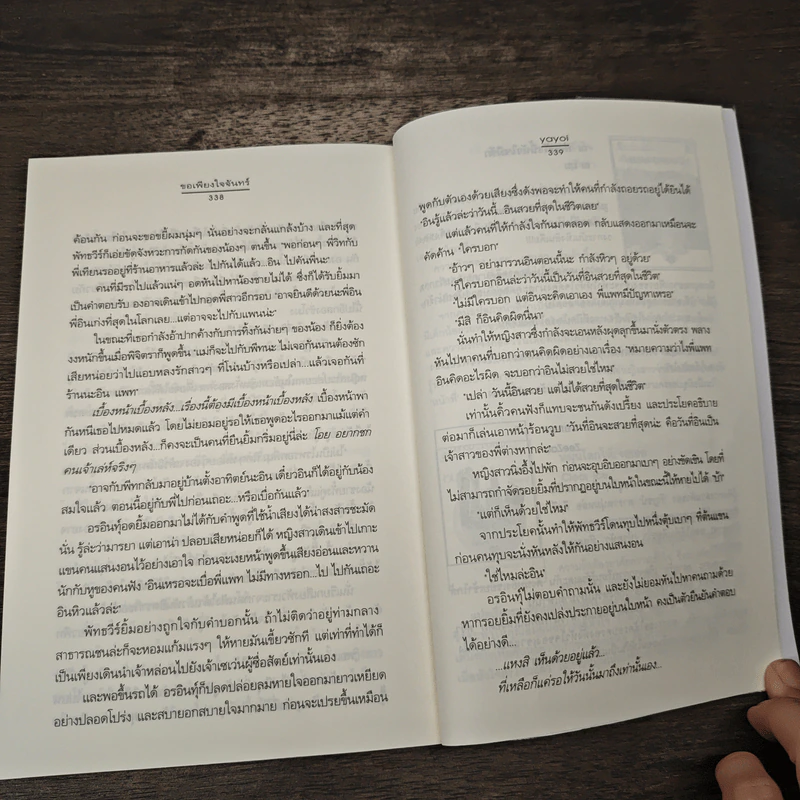 ขอเพียงใจจันทร์
338
ค้อนกัน ก่อนจะขอขยี้ผมนุ่มๆ นั่นอย่างจะกลั่นแกล้งบ้าง และที่สุด
พัทธวีร์ก็เอ่ยขัดจังหวะการกัดกันของน้องๆ ตนขึ้น "พอก่อนๆ พี่วีทกับ
พี่เทียนรออยู่ที่ร้านอาหารแล้วล่ะ ไปกันได้แล้ว...อิน ไปคันพี่นะ"
คนที่มีรถไปแล้วแน่ๆ อดหันไปหาน้องชายไม่ได้ ซึ่งก็ได้รับยิ้มมา
เป็นคำตอบรับ องอาจเดินเข้าไปกอดพี่สาวอีกรอบ "อาจยินดีด้วยน่ะพี่อิน
พี่อินเก่งที่สุดในโลกเลย...แต่อาจจะไปกับแพนน่ะ"
ในขณะที่เธอกำลังอ้าปากค้างกับการทิ้งกันง่ายๆ ของน้อง ก็ยิ่งต้อง
งงหนักขึ้นเมื่อพิจิตราก็พูดขึ้น "แม่ก็จะไปกับพีทนะ ไม่เจอกันนานต้องซัก
เสียหน่อยว่าไปแอบหลงรักสาวๆ ที่โน่นบ้างหรือเปล่า...แล้วเจอกันที่
ร้านนะอิน แพท"
เบื้องหน้าเบื้องหลัง...เรื่องนี้ต้องมีเบื้องหน้าเบื้องหลัง เบื้องหน้าพา
กันหนีเธอไปหมดแล้ว โดยไม่ยอมอยู่รอให้เธอพูดอะไรออกมาแม้แต่คำ
เดียว ส่วนเบื้องหลัง...ก็คงจะเป็นคนที่ยืนยิ้มกริ่มอยู่นี่ล่ะ โอย อยากชก
คนเจ้าเล่ห์จริงๆ
"อาจกับพีทกลับมาอยู่บ้านตั้งอาทิตย์นะอิน เดี๋ยวอินก็ได้อยู่กับน้อง
สมใจแล้ว ตอนนี้อยู่กับพี่ไปก่อนเถอะ...หรือเบื่อกันแล้ว"
อรอินทุ์อดยิ้มออกมาไม่ได้กับคำพูดที่ใช้น้ำเสียงได้น่าสงสารซะมัด
นั่น รู้ล่ะว่ามารยา แต่เอาน่า ปลอบเสียหน่อยก็ได้ หญิงสาวเดินเข้าไปเกาะ
แขนคนแสนงอนไว้อย่างเอาใจ ก่อนจะเงยหน้าพูดขึ้นเสียงอ่อนและหวาน
นักกับหูของคนฟัง "อินเหรอจะเบื่อพี่แพท ไม่มีทางหรอก...ไป ไปกันเถอะ
อินหิวแล้วล่ะ"
พัทธวีร์ยิ้มอย่างถูกใจกับคำบอกนั้น ถ้าไม่ติดว่าอยู่ท่ามกลาง
สาธารณชนล่ะก็จะหอมแก้มแรงๆ ให้หายมันเขี้ยวซักที แต่เท่าที่ทำได้ก็
เป็นเพียงเดินนำเจ้าหล่อนไปยังเจ้าเซเว่นผู้ซื่อสัตย์เท่านั้นเอง
และพอขึ้นรถได้ อรอินทุ์ก็ปลดปล่อยลมหายใจออกมายาวเหยียด
อย่างปลอดโปร่ง และสบายอกสบายใจมากมาย ก่อนจะเปรยขึ้นเหมือน
yayoi
339
พูดกับตัวเองด้วยเสียงซึ่งดังพอจะทำให้คนที่กำลังถอยรถอยู่ได้ยินได้
"อินรู้แล้วล่ะว่าวันนี้...อินสวยที่สุดในชีวิตเลย"
แต่แล้วคนที่ให้กำลังใจกันมาตลอด กลับแสดงออกมาเหมือนจะ
คัดค้าน "ใครบอก"
"อ้าวๆ อย่ามารวนอินตอนนี้นะ กำลังหิวๆ อยู่ด้วย"
"ก็ใครบอกอินล่ะว่าวันนี้เป็นวันที่อินสวยที่สุดในชีวิต"
"ไม่มีใครบอก แต่อินจะคิดเอาเอง พี่แพทมีปัญหาเหรอ"
"มีสิ ก็อินคิดผิดนี่นา"
นั่นทำให้หญิงสาวซึ่งกำลังจะเอนหลังผุดลุกขึ้นมานั่งตัวตรง พลาง
หันไปหาคนที่บอกว่าตนคิดผิดอย่างเอาเรื่อง "หมายความว่าไงพี่แพท
อินคิดอะไรผิด จะบอกว่าอินไม่สวยใช่ไหม"
"เปล่า วันนี้อินสวย แต่ไม่ได้สวยที่สุดในชีวิต"
เท่านั้นคิ้วคนฟังก็แทบจะชนกันดังเปรี้ยง และประโยคอธิบาย
ต่อมาก็เล่นเอาหน้าร้อนวูบ "วันที่อินจะสวยที่สุดน่ะ คือวันที่อินเป็น
เจ้าสาวของพี่ต่างหากล่ะ"
หญิงสาวนิ่งอึ้งไปพัก ก่อนจะอุบอิบออกมาเบาๆ อย่างขัดเขิน โดยที่
ไม่สามารถกำจัดรอยยิ้มที่ปรากฏอยู่บนใบหน้าในขณะนี้ให้หายไปได้ "บ้า"
"แต่ก็เห็นด้วยใช่ไหม"
จากประโยคนั้นทำให้พัทธวีร์โดนทุบไปหนึ่งตุ้บเบาๆ ที่ต้นแขน
ก่อนคนทุบจะนั่งหันหลังให้กันอย่างแสนงอน
"ใช่ไหมล่ะอิน"
อรอินทุ์ไม่ตอบคำถามนั้น และยังไม่ยอมหันไปหาคนถามด้วย
หากรอยยิ้มที่ยังคงเปล่งประกายอยู่บนใบหน้า คงเป็นตัวยืนยันคำตอบ
ได้อย่างดี...
...แหงสิ เห็นด้วยอยู่แล้ว...
ที่เหลือก็แค่รอให้วันนั้นมาถึงเท่านั้นเอง...